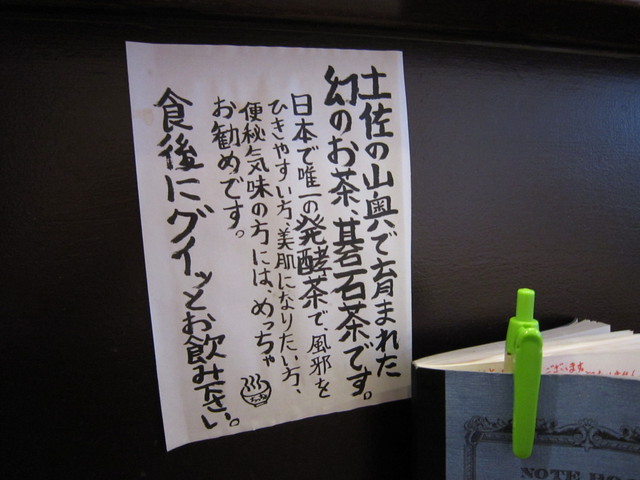 土佐の山奥で育まれた
幻のお茶、碁石茶です。
日本で唯一の発酵茶で、風邪を
ひきやすい方、美肌になりたい方、
便秘気味の方には、めっちゃ
お勧めです。
食後にグイッとお飲み下さい。
ございます
NOTE BO